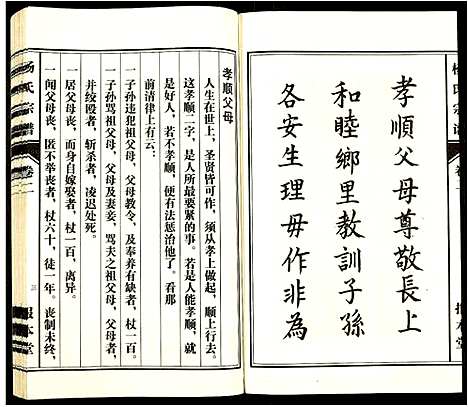 孝順父母尊敬長上
和睦鄉里教訓子孫
各安生理毋作非為
孝顺父母
人生在世上，圣贤皆可作，须从孝上做起，顺上行去。
这孝顺二字，是人所最紧要的事。若是人能孝顺，就
是好人，若不孝顺，便有法惩治他了。看那
前清律上有云：
一子孙违犯祖父母，父母教令，及奉养有缺者，杖一百。
一子孙骂祖父母，父母及妻妾，骂夫之祖父母，父母者，
并绞殴者，斩杀者，凌迟处死。
一居父母丧，而身自嫁娶者，杖一百，离异。
一闻父母丧，匿不举丧者，杖六十，徒一年。丧制未终，
杨氏宗谱
卷二
报本堂